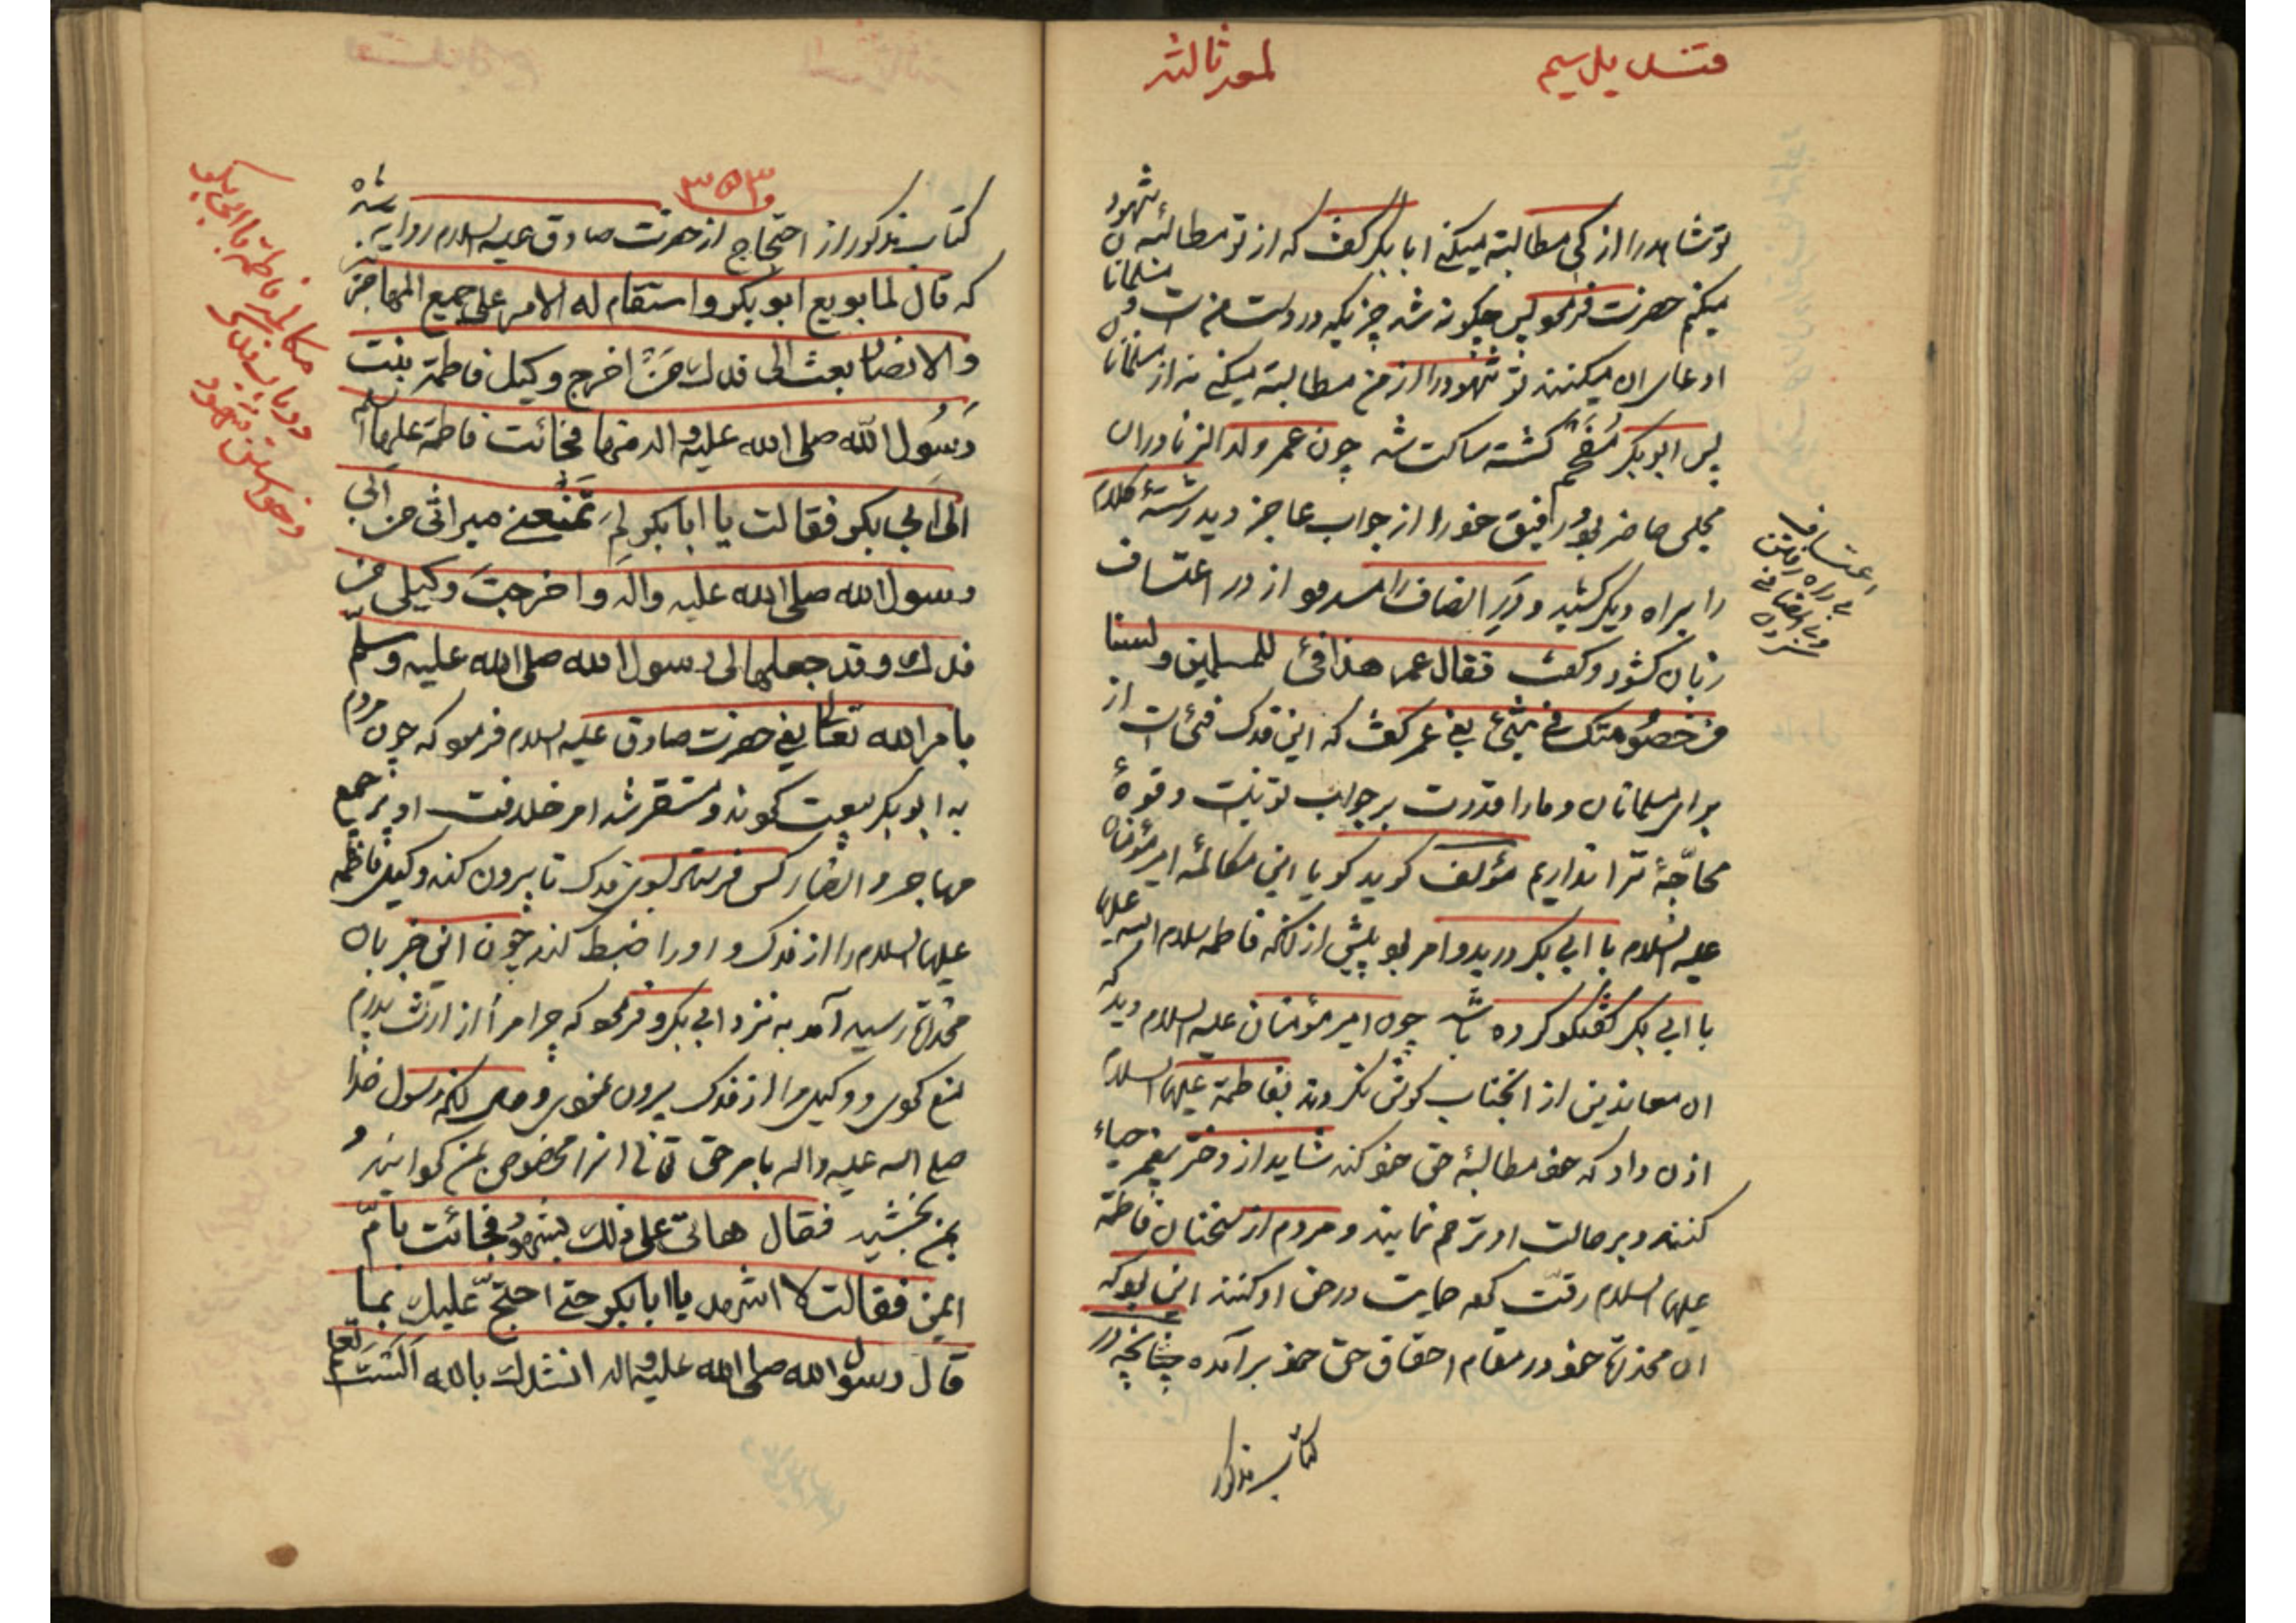 لمعه ثالثه
توشاهد را از کی مطالبته میکنی ابابکر گفت که از تو مطالبهٔ شهود
میکنم حضرت فرمود پس چگونه شد چیزیکه در دست منست و مسلمانان
ادعای ان میکنند تو شهود را از من مطالبته میکنی نه از مسلمانان
پس ابوبکر مفحم گشته ساکت شد چون عمر ولد الزنا دران
مجلس حاضر بود رفیق خود را از جواب عاجز دید رشتهٔ کلام
را براه دیگر کشید و در انصاف را مسدود از در اعتساف
زبان کشود و گفت فقال عمر هذا فیٔ للمسلمین ولسنا
من خصومتک فی شیٔ یعنی عمر گفت که این فدک فیٔ است از
برای مسلمانان و مارا قدرت بر جواب تو نیست و قوهٔ
محاجّهٔ ترا نداریم مؤلف گوید گویا این مکالمهٔ امیر مؤمنان
علیه السلام با ابی بکر در بدو امر بود پیش از انکه فاطمه سلام الله علیها
با ابی بکر گفتگو کرده باشد چون امیر مؤمنان علیه السلام دید که
ان معاندین از انجناب گوش نکردند بفاطمة علیها السلام
اذن داد که خود مطالبهٔ حق خود کند شاید از دختر پیغمبر حیاء
کنند و بر حالت او ترحم نمایند و مردم از سخنان فاطمه
علیها السلام رقّت کرده حمایت در حق او کنند این بود که
ان مخدره خود در مقام احقاق حق خود برآمده چنانچه در
کتاب مذکور
اعتساف
بی راه رفتن
و بی انصافی
کردن
۳۵۳
کتاب مذکور از احتجاج از حضرت صادق علیه السلام روایت شده
که قال لما بویع ابو بکر واستقام له الامر علی جمیع المهاجرین
والانصار بعث الی فدك من اخرج وکیل فاطمة بنت
رسول الله صلی الله علیه واله منها فجائت فاطمة علیها السلم
الی ابی بکر فقالت یا ابا بکر لم تمنعنی میراثی من ابی
رسول الله صلی الله علیه واله واخرجت وکیلی من
فدك وقد جعلها لی رسول الله صلی الله علیه وسلم
بامر الله تعالی یعنی حضرت صادق علیه السلام فرمود که چون مردم
به ابو بکر بیعت کردند و مستقر شد امر خلافت او بر جمیع
مهاجر و انصار کس فرستاد بسوی فدک تا بیرون کند وکیل فاطمه
علیها السلام را از فدک و او را ضبط کند چون این خبر بان
مخدره رسید آمد به نزد ابی بکر و فرمود که چرا مرا از ارث پدرم
منع کردی و وکیل مرا از فدک بیرون نمودی و حال انکه رسول خدا
صلی الله علیه واله بامر حق تعالی انرا مخصوص من گردانید و
بمن بخشید فقال هاتی علی ذلك بشهود فجائت بامّ
ایمن فقالت لا اشهد یا ابا بکر حتی احتجّ علیك بما
قال رسول الله صلی الله علیه واله انشدك بالله الست تعلم
مکالمه فاطمه با ابی بکر
در باب فدک
و خواستن شهود